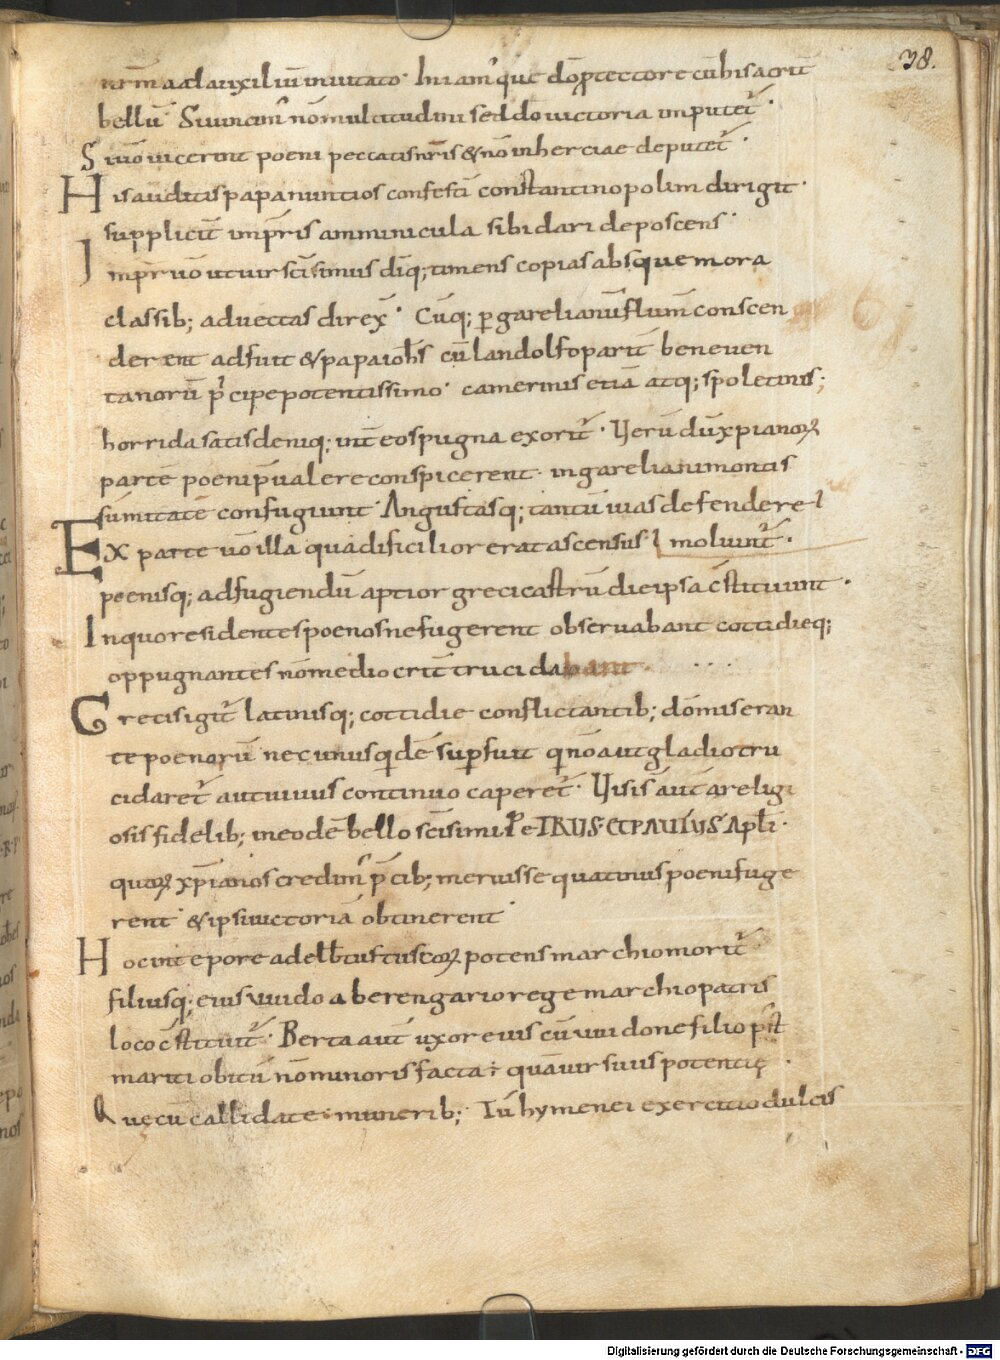 38.
nr̄m ad auxiliū inuitato· Iniam̄ q̄ue dō p̄tectore cū his acrit̄
bellū· Si uincim̄ nōmultitudini sed dō uictoria imputet̄·
Siuō uicerint poeni peccatis nr̄is & nō inherciae deputet̄·
His auditis papa nuntios confestī constantinopolim dirigit·
suppliciū imp̄ris amminicula sibi dari deposcens·
Imp̄r uō ut uir sc̄isimus d̄iq; timens copias absque mora
classib; aduectas direx̄· Cūq; p̱ garelianū flum̄ conscen
derent adfuit & papa ioh̄s cū landolfo parit̄ beneuen
tanorū p̄cipe potentissimo· camerinis etiā atq; spoletinis;
horrida satis deniq; int̄ eos pugna exorit̄· Verū dū xpianoꝝ
partē poeni p̄ualere conspicerent· in gareliani montis
sūmitatē confugiunt· Angustasq; tantū uias defendere
Ex parte uō illa qua dificilior erat ascensus moliunt̄·
poenisq; ad fugiendū aptior greci castrū die ipsa c̄stituunt·
In quo residentes poenos ne fugerent obseruabant cottidieq;
oppugnantes nōmediocrit̄ trucidabant·
Grecis igit̄ latinisq; cottidie conflictantib; dō miseran
te poenorū nec unus q̄dē sup̱fuit q̄ nō aut gladio tru
cidaret̄ aut uiuus continuo caperet̄· Visi s̄ aut̄ a religi
osis fidelib; in eodē bello sc̄isimi PeTRVS· ET PAVLVS· Apl̄i·
quoꝝ xp̄ianos credim̄ p̄cib; meruisse quatinus poeni fuge
rent· & ipsi uictoriā obtinerent·
Hoc int̄epore adelb̄tus tuscoꝝ potens marchio morit̄
filiusq; eius uuido a berengario rege marchio patris
loco c̄stituit̄· Berta aut̄ uxor eius cū uuidone filio p̄ st
mariti obitū nōminoris facta ÷ quā uir suus potentię·
Quę cū calliditate munerib; Tū hymenei exercitio dulcis
Digitalisierung gefördert durch die Deutsche Forschungsgemeinschaft - DFG